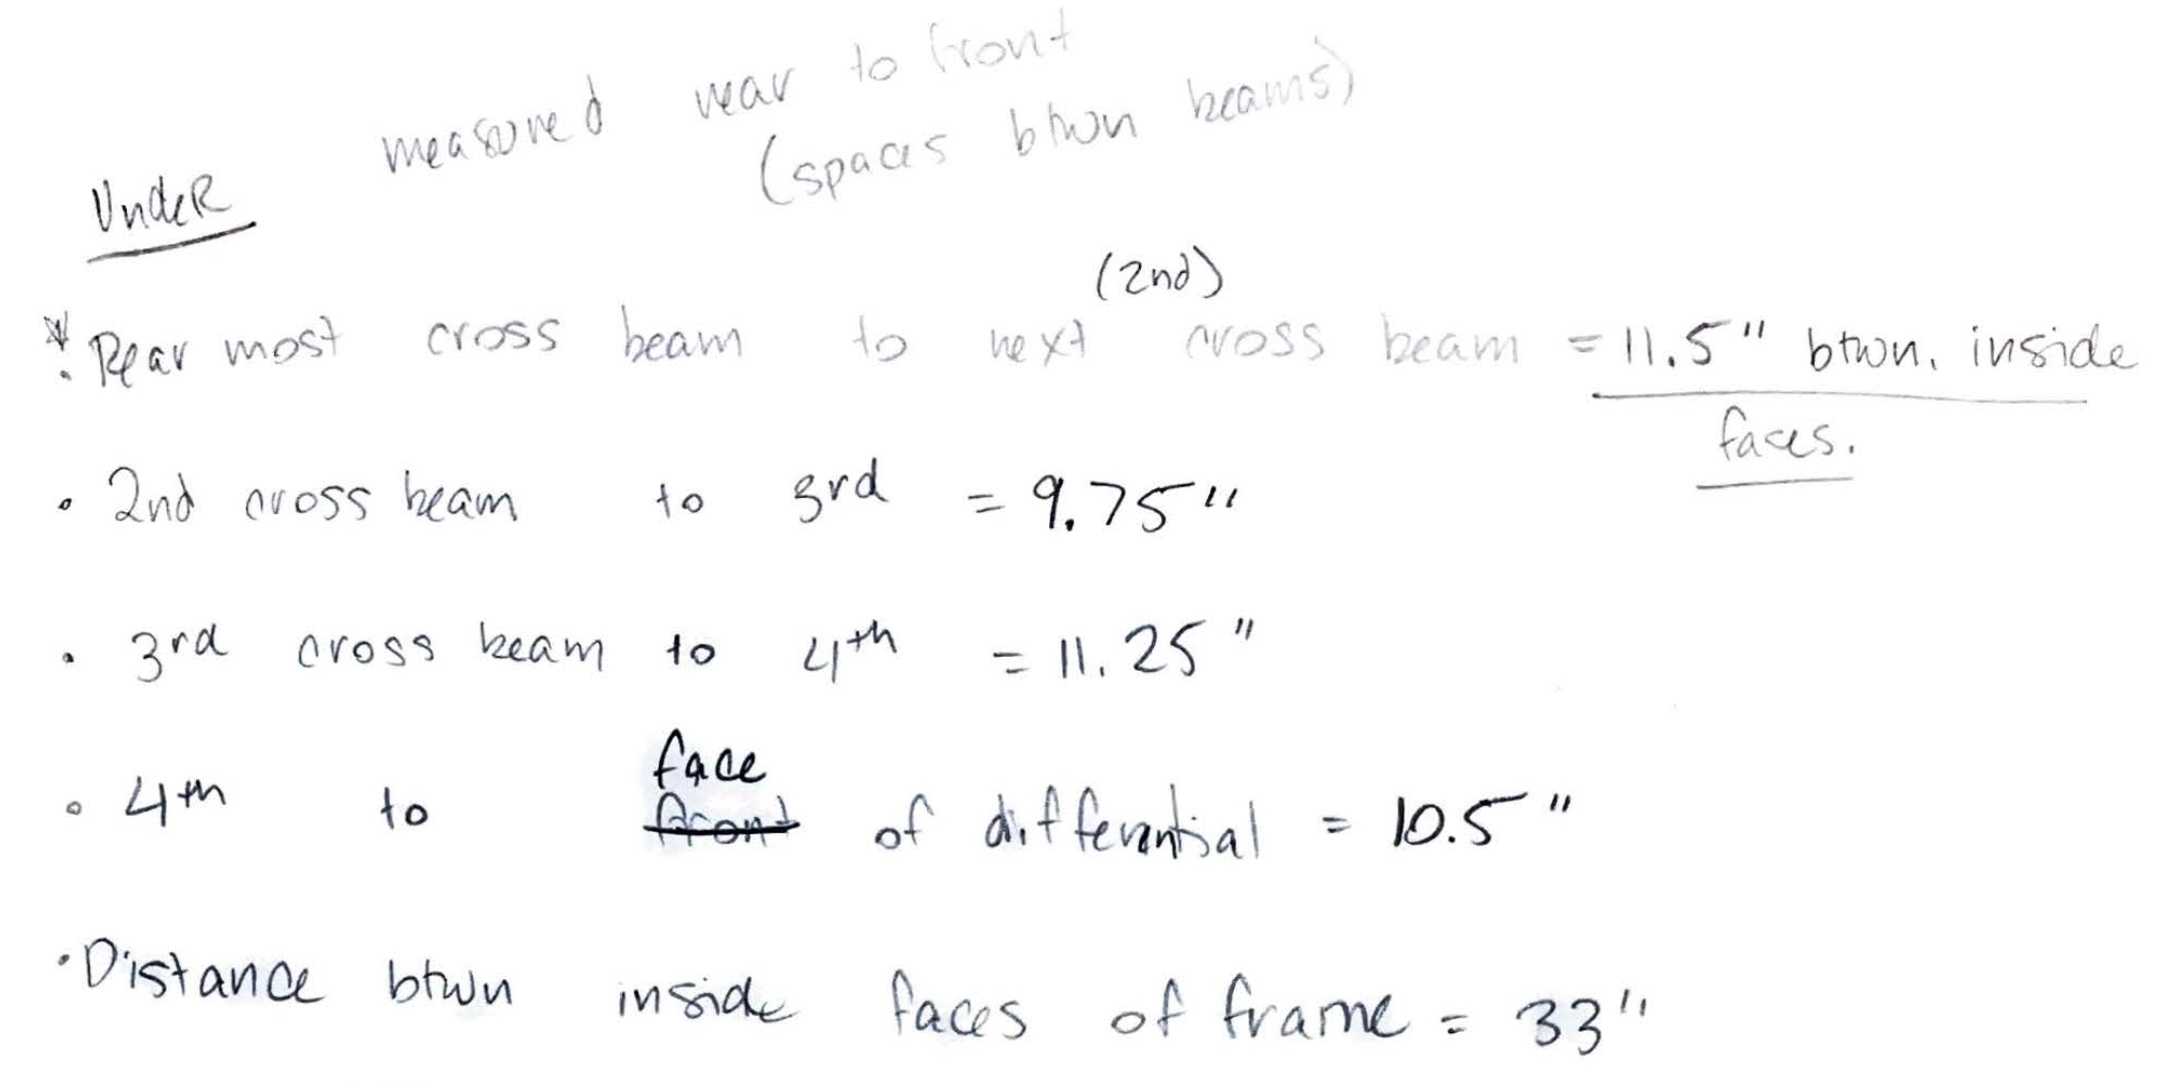 measured rear to front
(spaces btwn beams)
Under
(2nd)
* • Rear most cross beam to next cross beam = 11.5" btwn. inside
faces.
• 2nd cross beam to 3rd = 9.75"
• 3rd cross beam to 4th = 11.25"
face
• 4th to front of differential = 10.5"
• Distance btwn inside faces of frame = 33"